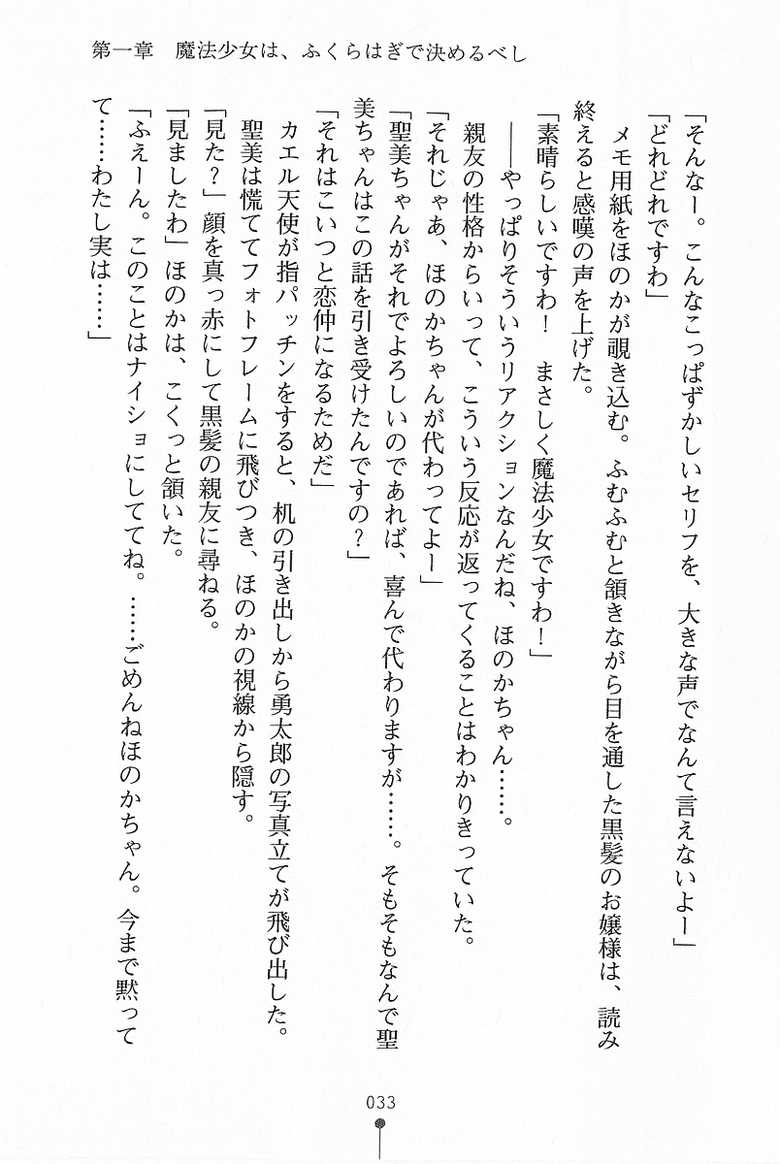 第一章　魔法少女は、ふくらはぎで決めるべし
「そんなー。こんなこっぱずかしいセリフを、大きな声でなんて言えないよー」
「どれどれですわ」
　メモ用紙をほのかが覗き込む。ふむふむと頷きながら目を通した黒髪のお嬢様は、読み
終えると感嘆の声を上げた。
「素晴らしいですわ！　まさしく魔法少女ですわ！」
　――やっぱりそういうリアクションなんだね、ほのかちゃん……。
　親友の性格からいって、こういう反応が返ってくることはわかりきっていた。
「それじゃあ、ほのかちゃんが代わってよー」
「聖美ちゃんがそれでよろしいのであれば、喜んで代わりますが……。そもそもなんで聖
美ちゃんはこの話を引き受けたんですの？」
「それはこいつと恋仲になるためだ」
　カエル天使が指パッチンをすると、机の引き出しから勇太郎の写真立てが飛び出した。
　聖美は慌ててフォトフレームに飛びつき、ほのかの視線から隠す。
「見た？」顔を真っ赤にして黒髪の親友に尋ねる。
「見ましたわ」ほのかは、こくっと頷いた。
「ふえーん。このことはナイショにしててね。……ごめんねほのかちゃん。今まで黙って
て……わたし実は……」
033